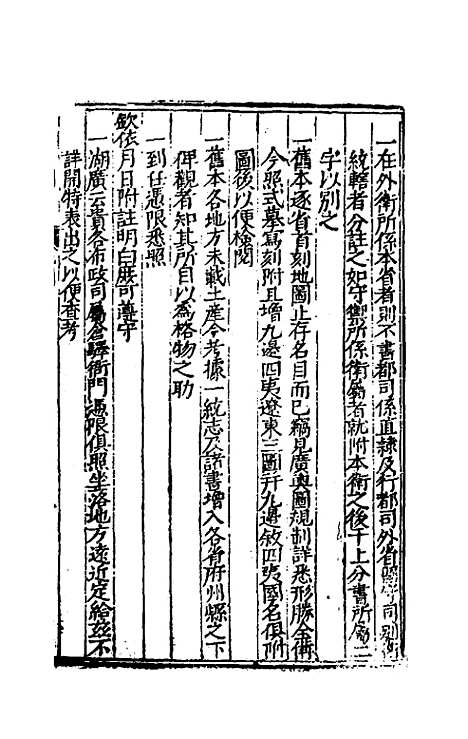 一在外衛所係本省者則不書都司係直隷及行都司外省
統轄者分註之如守禦所係衛屬者就附本衛之後于上分書所屬二
字以別之
一舊本逐省首刻地圖止存名目而已竊見廣輿圖規制詳悉形勝全備
今照式摹寫刻附且增九邊四夷遼東三圖并九邊敘四夷國名俱附
圖後以便檢閱
一舊本各地方未載土産今考據一統志及諸書增入各省府州縣之下
俾觀者知其所自以為格物之助
一到任憑限悉照
欽依月日附註明白庶可遵守
一湖廣云貴各布政司屬倉驛衙門憑限俱照坐落地方遠近定給茲不
詳開特表出之以便查考